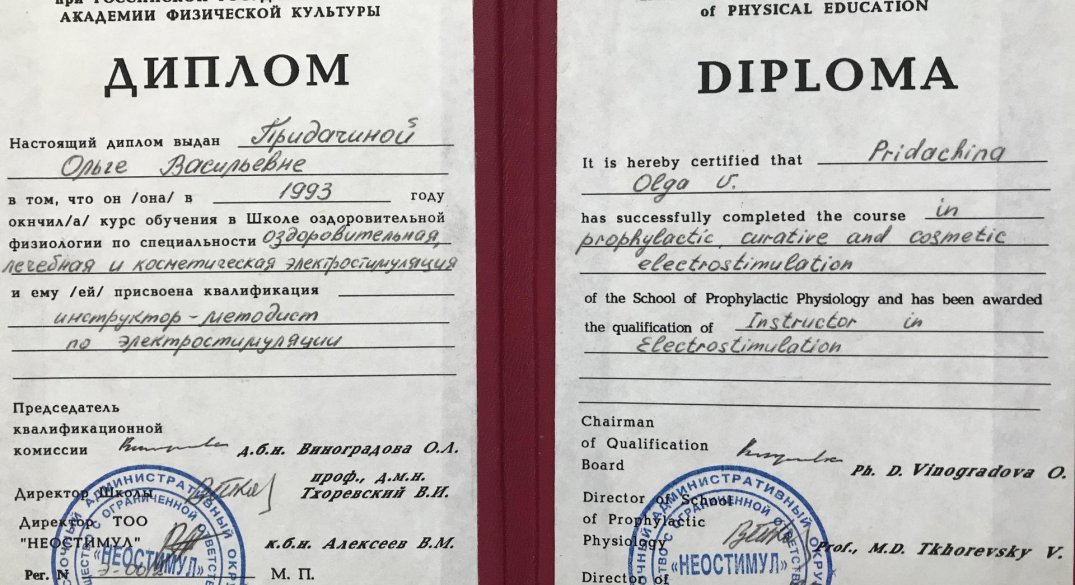 АКАДЕМИИ ФИЗИЧЕСКОЙ КУЛЬТУРЫ
ДИПЛОМ
Настоящий диплом выдан Придачиной
Ольге Васильевне
в том, что он /она/ в 1993 году
окнчил/а/ курс обучения в Школе оздоровительной
физиологии по специальности оздоровительная,
лечебная и косметическая электростимуляция
и ему /ей/ присвоена квалификация
инструктор-методист
по электростимуляции
Председатель
квалификационной
комиссии д.б.н. Виноградова О.Л.
проф., д.м.н.
Директор Школы Тхоревский В.И.
Директор ТОО
"НЕОСТИМУЛ" к.б.н. Алексеев В.М.
Рег. N М. П.
«НЕОСТИМУЛ»
of PHYSICAL EDUCATION
DIPLOMA
It is hereby certified that Pridachina
Olga V.
has successfully completed the course in
prophylactic, curative and cosmetic
electrostimulation
of the School of Prophylactic Physiology and has been awarded
the qualification of Instructor in
Electrostimulation
Chairman
of Qualification
Board Ph. D. Vinogradova O.
Director of School
of Prophylactic
Physiology Prof., M.D. Tkhorevsky V.
Director of
«НЕОСТИМУЛ»